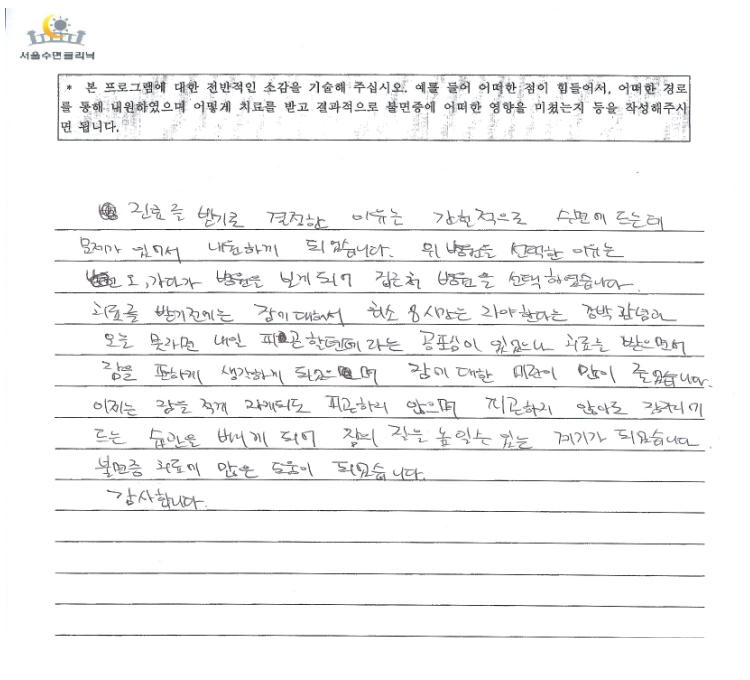 서울수면클리닉
* 본 프로그램에 대한 전반적인 소감을 기술해 주십시오. 예를 들어 어떠한 점이 힘들어서, 어떠한 경로
를 통해 내원하였으며 어떻게 치료를 받고 결과적으로 불면증에 어떠한 영향을 미쳤는지 등을 작성해주시
면 됩니다.
진료를 받기로 결정한 이유는 간헐적으로 수면에 드는데
문제가 있어서 내원하게 되었습니다. 위 병원을 선택한 이유는
오,가다가 병원을 보게되어 집근처 병원을 선택하였습니다.
치료를 받기전에는 잠에 대해서 최소 8시간은 자야한다는 강박관념과
오늘 못자면 내일 피곤할텐데 라는 공포심이 있었으나 치료를 받으면서
잠을 편하게 생각하게 되었으며 잠에 대한 미련이 많이 줄었습니다.
이제는 잠을 적게 자게되도 피곤하지 않으며 피곤하지 않아도 잠자리에
드는 습관을 버리게 되어 잠의 질을 높일수 있는 계기가 되었습니다.
불면증 치료에 많은 도움이 되었습니다.
감사합니다.